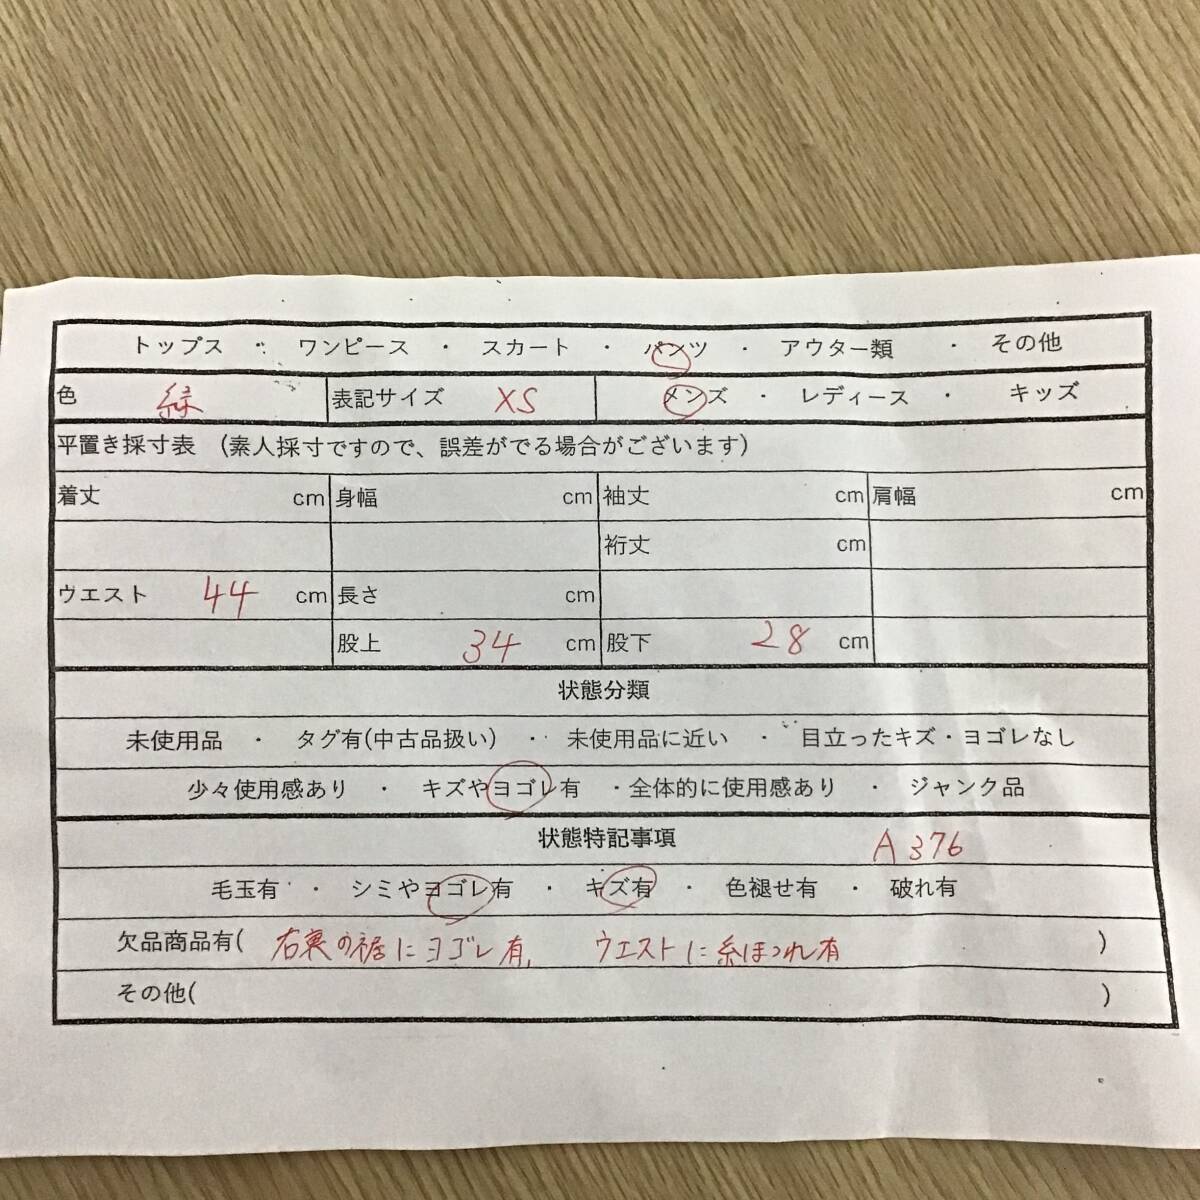 トップス ・ ワンピース ・ スカート ・ パンツ ・ アウター類 ・ その他
色 緑 表記サイズ XS メンズ ・ レディース ・ キッズ
平置き採寸表 (素人採寸ですので、誤差がでる場合がございます)
着丈 cm 身幅 cm 袖丈 cm 肩幅 cm
裄丈 cm
ウエスト 44 cm 長さ cm
股上 34 cm 股下 28 cm
状態分類
未使用品 ・ タグ有(中古品扱い) ・ 未使用品に近い ・ 目立ったキズ・ヨゴレなし
少々使用感あり ・ キズやヨゴレ有 ・全体的に使用感あり ・ ジャンク品
状態特記事項 A376
毛玉有 ・ シミやヨゴレ有 ・ キズ有 ・ 色褪せ有 ・ 破れ有
欠品商品有( 右裏の裾にヨゴレ有、 ウエストに糸ほつれ有 )
その他( )